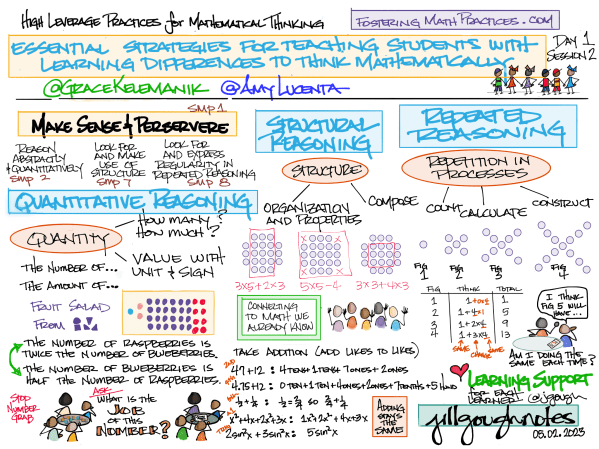 High Leverage Practices for Mathematical Thinking
FosteringMathPractices.com
Essential Strategies for Teaching Students with
Learning Differences to Think Mathematically
Day 1
Session 2
@GraceKelemanik @AmyLucenta
SMP 1
Make Sense & Perservere
Reason
Abstractly
& Quantitatively
SMP 2
Look for
and make
use of
Structure
SMP 7
Look for
and express
regularity in
repeated reasoning
SMP 8
Quantitative Reasoning
Quantity
How many?
How much?
Value with
unit & sign
The number of...
The amount of...
Fruit Salad
From
The number of raspberries is
twice the number of blueberries.
The number of blueberries is
half the number of raspberries.
Stop
Number
Grab
Ask...
What is the
Job
of this
Number?
Structural
Reasoning
Structure
Organization
and Properties
Compose
3x5+2x3
5x5-4
3x3+4x3
Connecting
to math we
already know
Take addition (add likes to likes)
47+12:
4.75+2:
x²+4x+2x²+3x:
2sin²x+3sin²x: 5sin²x
Adding
stays the
same!
Repeated
Reasoning
Repetition in
Processes
Count
Calculate
Construct
Fig
1
Fig
2
Fig
3
Fig
4
Fig Think Total
1 1+0x4 1
2 1+4x1 5
3 1+2x4 9
4 1+3x4 13
same
change
same
I think
Fig 5 will
have...
Am I doing the
same each time?
Learning Support
for each
learner
@jgough
jillgoughnotes
05.02.2023